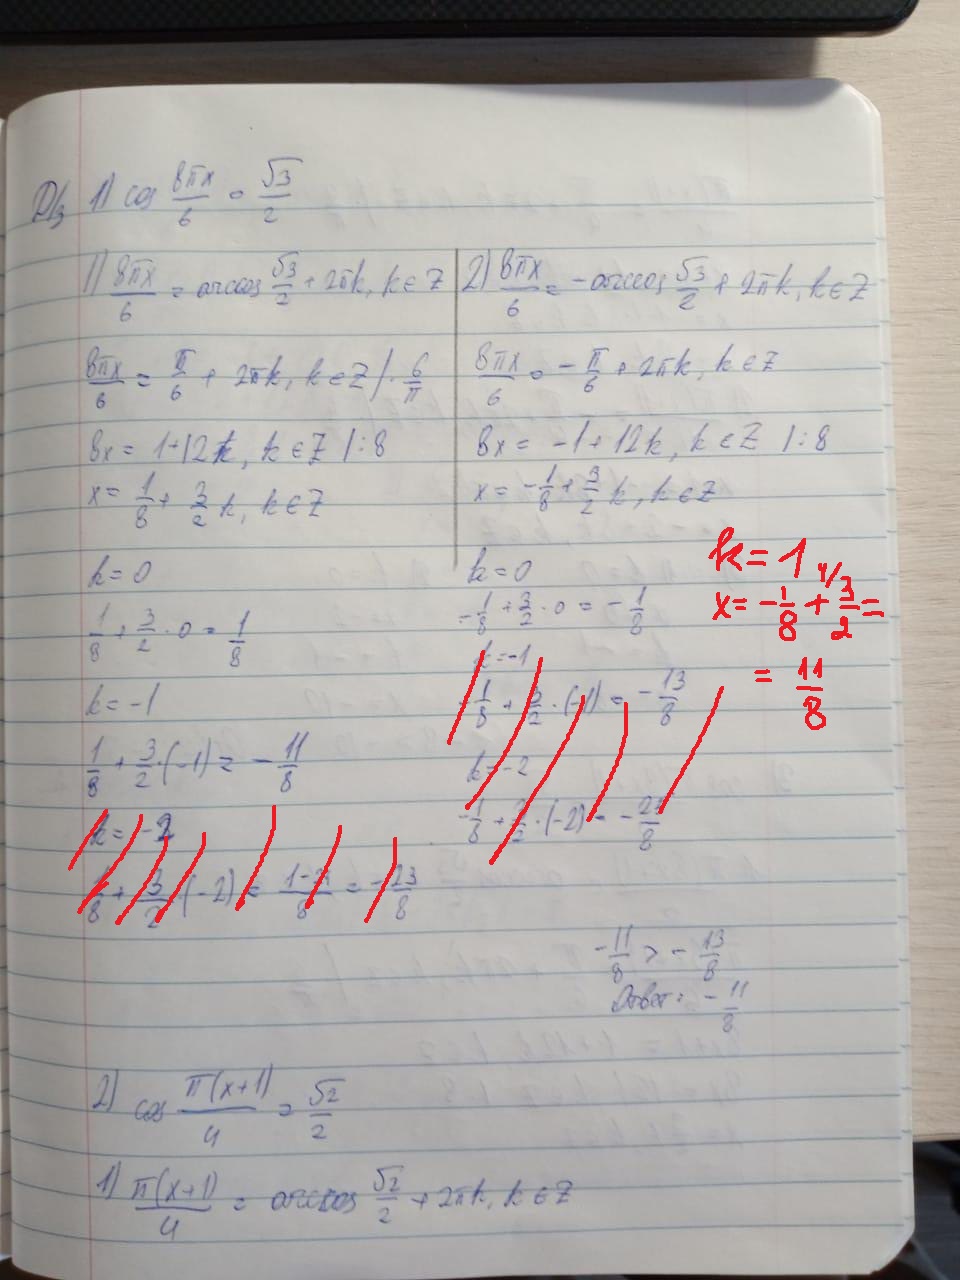 Д/з 1) cos 8πx/6 = √3/2
1) 8πx/6 = arccos √3/2 + 2πk, k∈Z
8πx/6 = π/6 + 2πk, k∈Z | · 6/π
8x = 1+12k, k∈Z |:8
x = 1/8 + 3/2 k, k∈Z
k=0
1/8 + 3/2 · 0 = 1/8
k=-1
1/8 + 3/2 · (-1) = -11/8
k=-2
1/8 + 3/2 · (-2) = 1-24/8 = -23/8
2) 8πx/6 = -arccos √3/2 + 2πk, k∈Z
8πx/6 = -π/6 + 2πk, k∈Z
8x = -1+12k, k∈Z |:8
x = -1/8 + 3/2 k, k∈Z
k=0
-1/8 + 3/2 · 0 = -1/8
k=-1
-1/8 + 3/2 · (-1) = -13/8
k=-2
-1/8 + 3/2 · (-2) = -25/8
k=1
x= -1/8 + 4/ 3/2 =
= 11/8
-11/8 > -13/8
Ответ: -11/8
2) cos π(x+1)/4 = √2/2
1) π(x+1)/4 = arccos √2/2 + 2πk, k∈Z